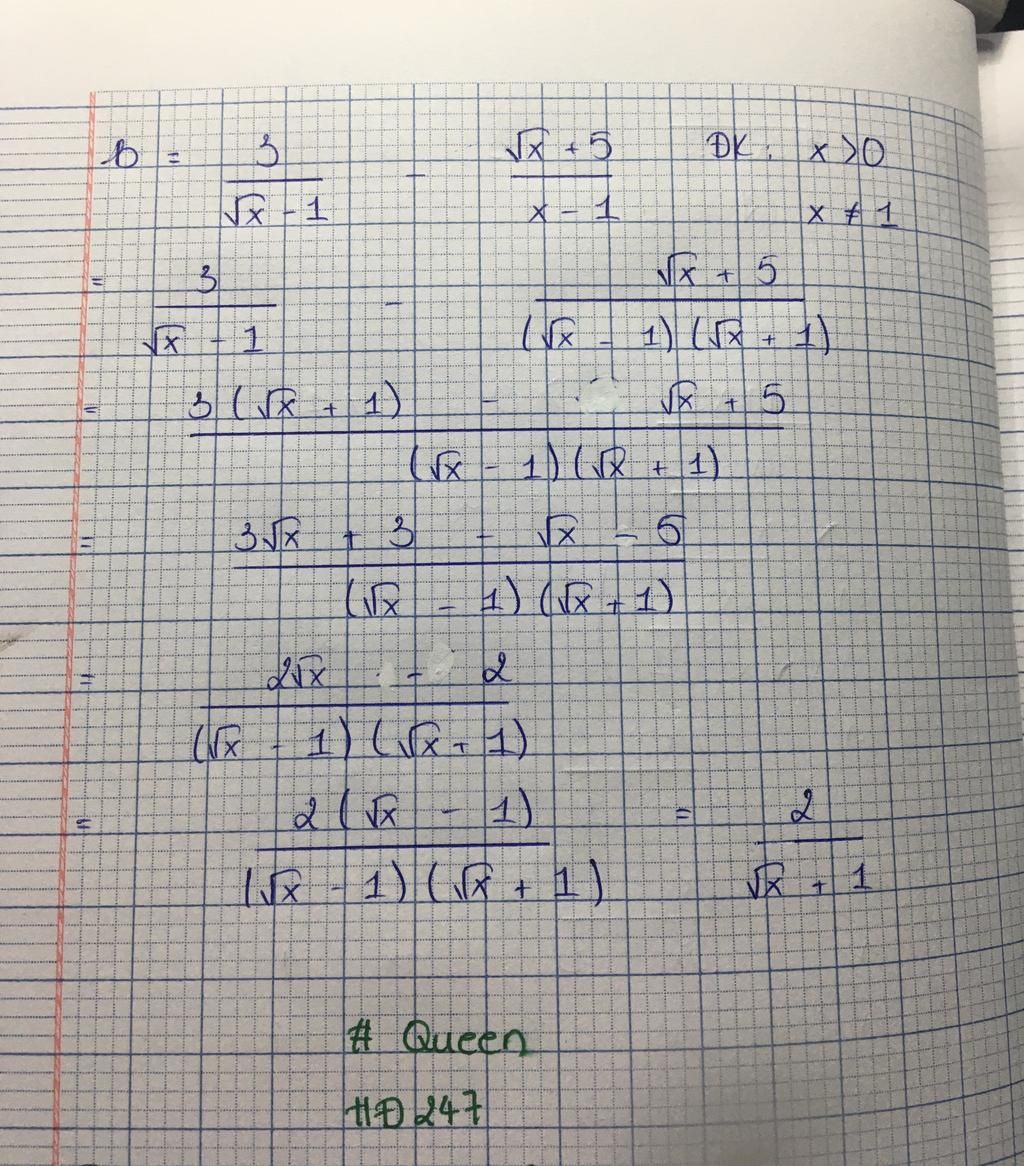 B = 3 / (√x - 1) - (√x + 5) / (x - 1) ĐK: x > 0
x ≠ 1
= 3 / (√x - 1) - (√x + 5) / ((√x - 1)(√x + 1))
= (3(√x + 1) - √x + 5) / ((√x - 1)(√x + 1))
= (3√x + 3 - √x - 5) / ((√x - 1)(√x + 1))
= (2√x - 2) / ((√x - 1)(√x + 1))
= 2(√x - 1) / ((√x - 1)(√x + 1)) = 2 / (√x + 1)
# Queen
HĐ247